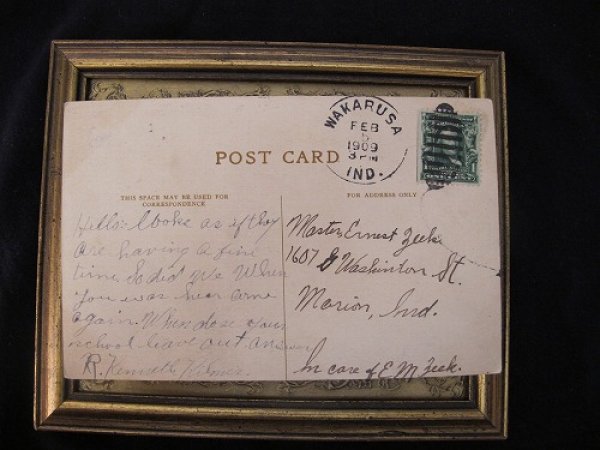 WAKARUSA
FEB
5
1909
3 PM
IND.
POST CARD
THIS SPACE MAY BE USED FOR
CORRESPONDENCE
FOR ADDRESS ONLY
Hello: looke as if they
are having a fine
time. So did we When
you was hear come
again. When dose your
school leave out answer
R. Kenneth
Master Ernest Zeek
1607 S Washinton St.
Marion, Ind.
In care of E M Zeek.